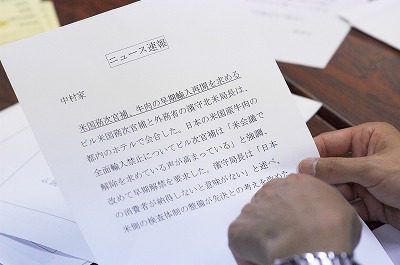 ニュース速報
中村家
米国務次官補、牛肉の早期輸入再開を求める
ビル米国務次官補と外務省の濱守北米局長は、
都内のホテルで会合した。日本の米国産牛肉の
全面輸入禁止についてビル次官補は「米会議で
解除を求めている声が高まっている」と強調、
改めて早期解禁を要求した。濱守局長は「日本
の消費者が納得しないと意味がない」と述べ、
米側の検査体制の整備が先決との考えを